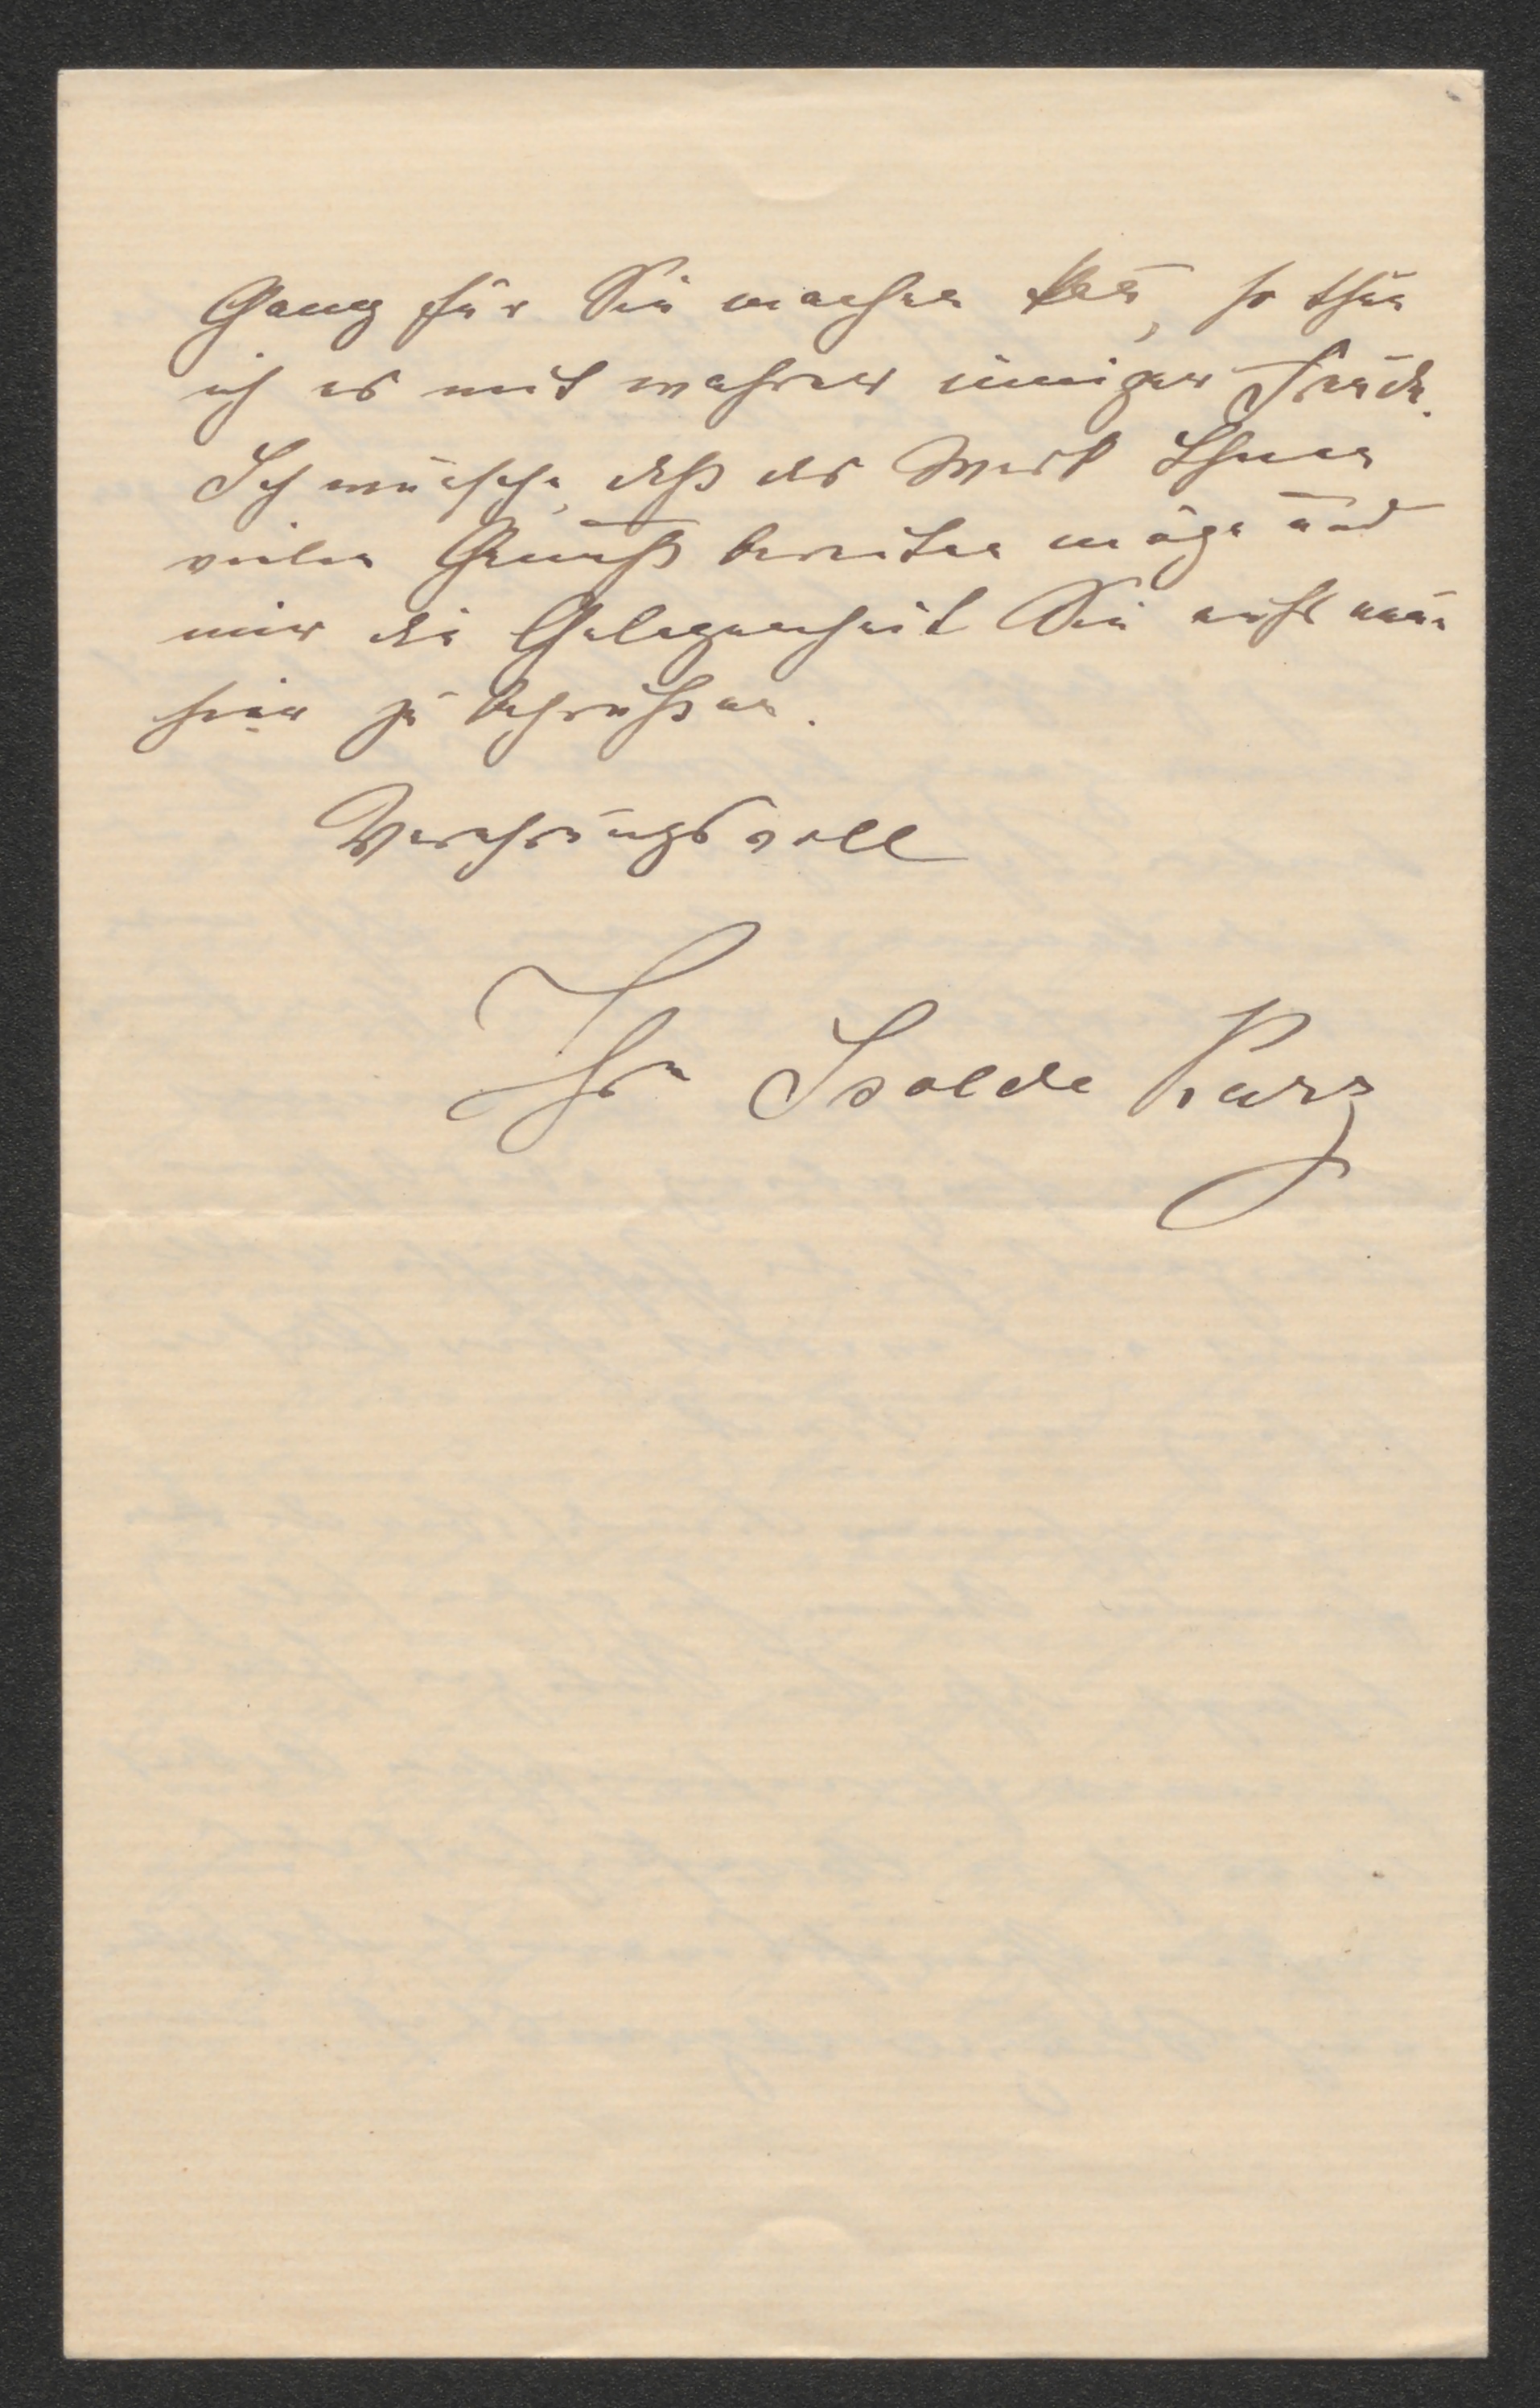 Gang für Sie machen kann, so thue
ich es mit wahrer inniger Freude.
Ich wünsche, daß das Werk Ihnen
vielen Genuß bereiten möge und
mir die Gelegenheit Sie aufs neue
hier zu begrüßen.
Verehrungsvoll
Ihre Isolde Kurz